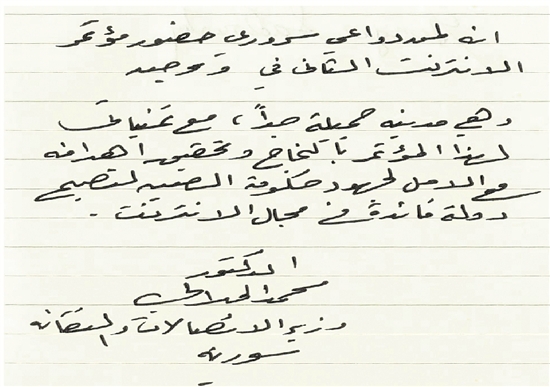 انه لمن دواعي سروري حضور مؤتمر
الانترنت الثاني في
وهي مدينه جميلة جداً، مع تمنياتي
لهذا المؤتمر بالنجاح وتحقيق اهدافه
مع الامل لجهود حكومة الصينيه لتصبح
دولة قائدة في مجال الانترنت.
الدكتور
محمد الجلالي
وزير الاتصالات والتقانه
سورية